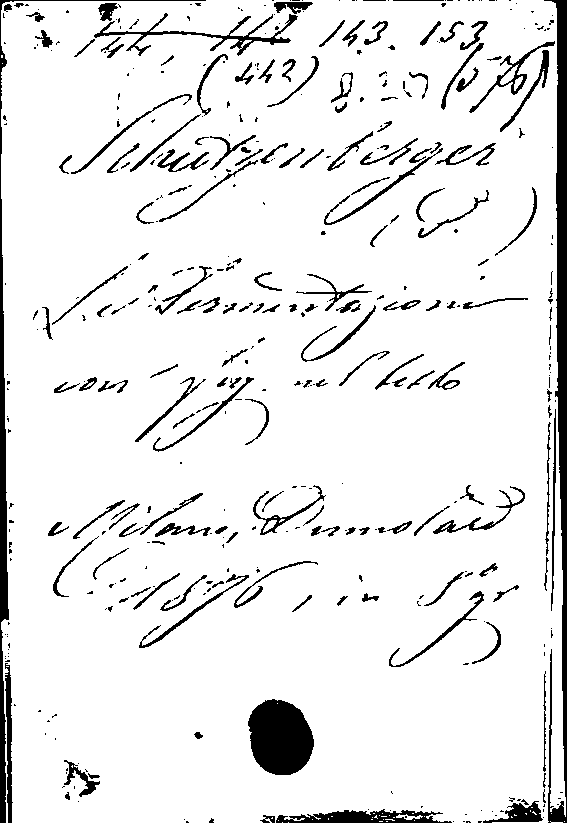 144, 144 143. 153
(442) 8.20 (576)
Schutzenberger
(P.)
Le Fermentazioni
con fig. nel testo
Milano, Dumolard
1876, in 8° gr